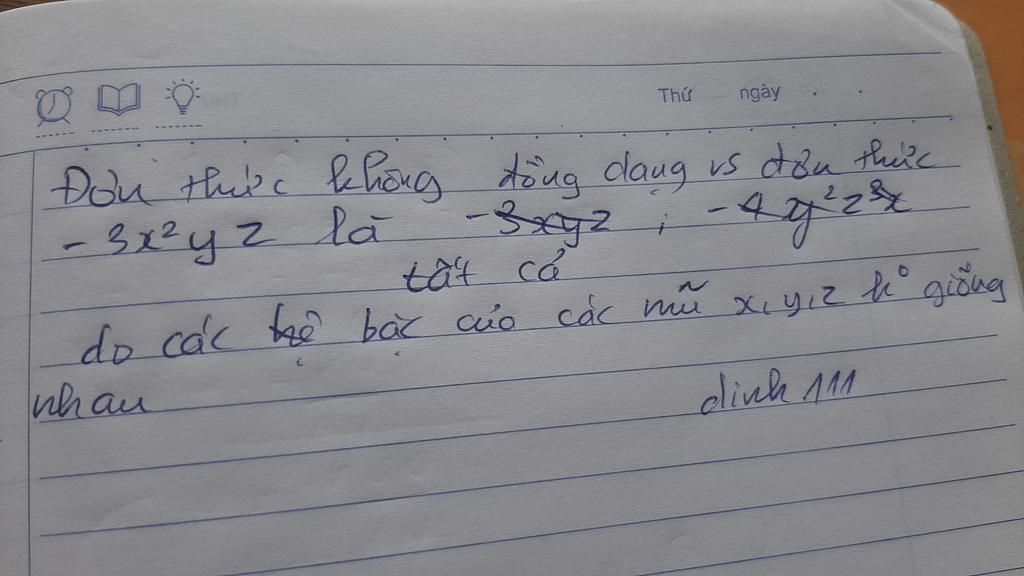 Thứ ngày . .
Đơn thức không đồng dạng vs đơn thức
- 3x²yz là -3xyz ; -4y²z³x
tất cả
do các hệ bậc của các mũ x,y,z k° giống
nhau
dinh 111